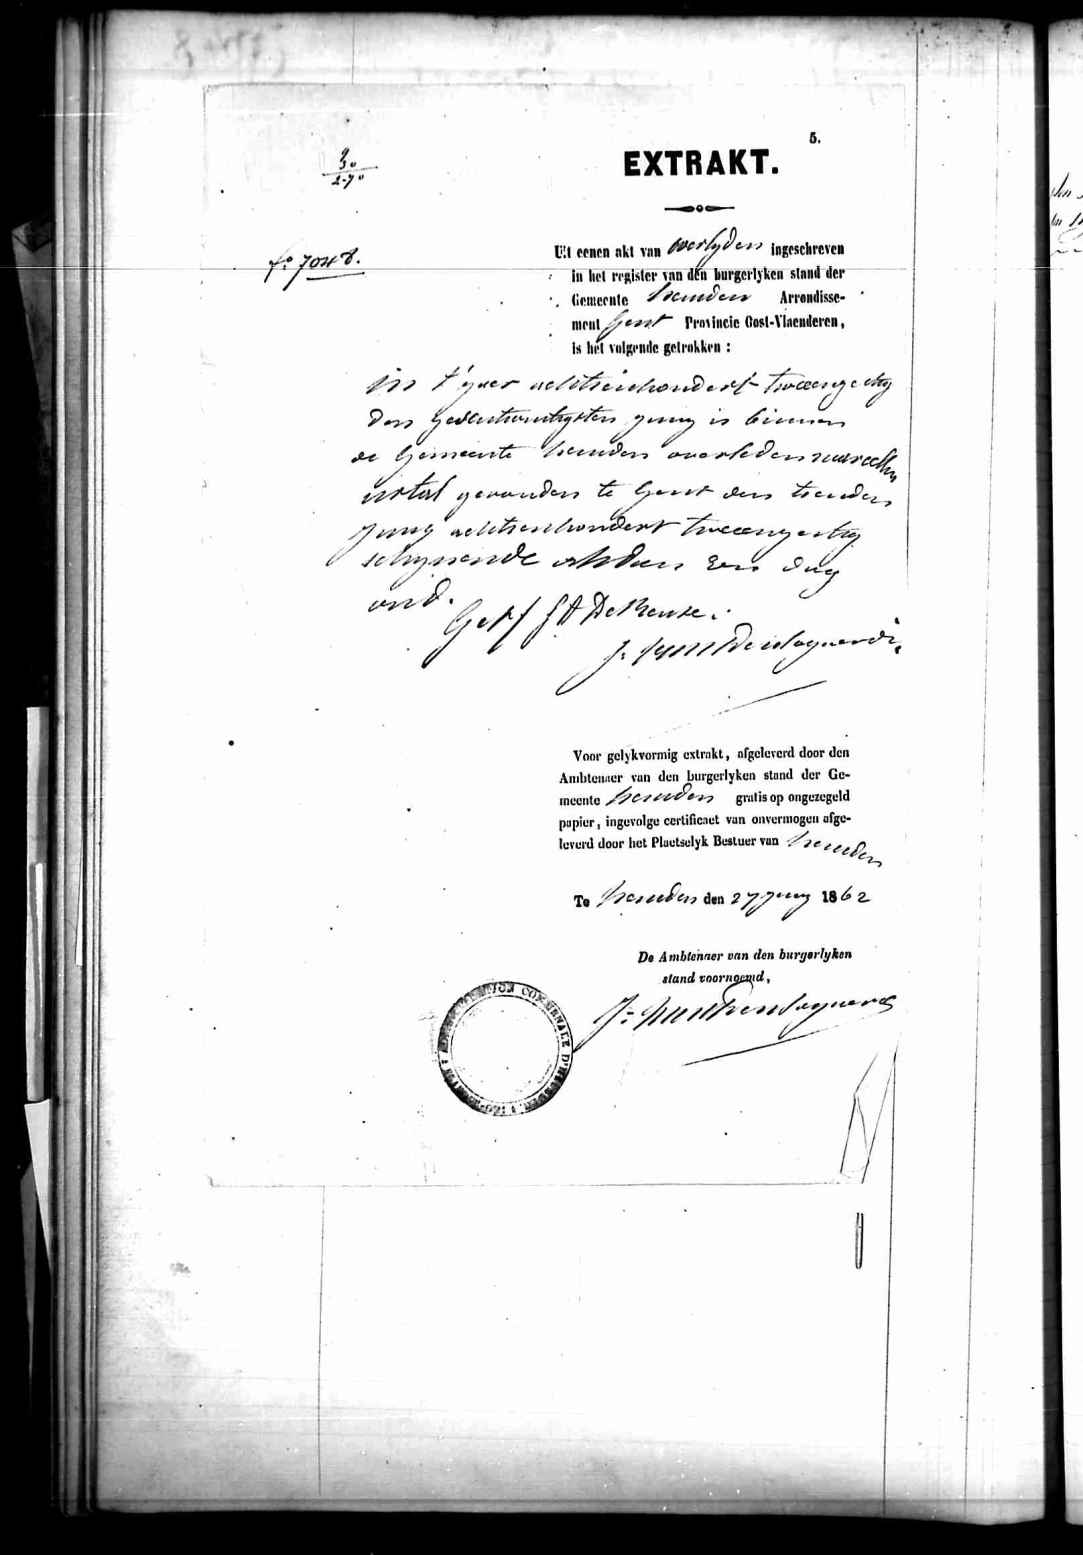 5.
EXTRAKT.
9
30
2-70
fo. 7048.
Uit eenen akt van overlyden ingeschreven
in het register van den burgerlyken stand der
Gemeente heusden Arrondisse-
ment Gent Provincie Oost-Vlaenderen,
is het volgende getrokken :
in t'jaer achttienhondert tweeenzestig
den zeventwintigsten juny is binnen
de Gemeente heusden overleden
gevonden te Gent den
juny achttienhondert tweeenzestig
schynende dag
oud.
Get/
J:
Voor gelykvormig extrakt, afgeleverd door den
Ambtenaer van den burgerlyken stand der Ge-
meente heusden gratis op ongezegeld
papier, ingevolge certificaet van onvermogen afge-
leverd door het Plaetselyk Bestuer van heusden
Te heusden den 27 juny 1862
De Ambtenaer van den burgerlyken
stand voornoemd,
J:
COMMUNALE D'HEUSDEN